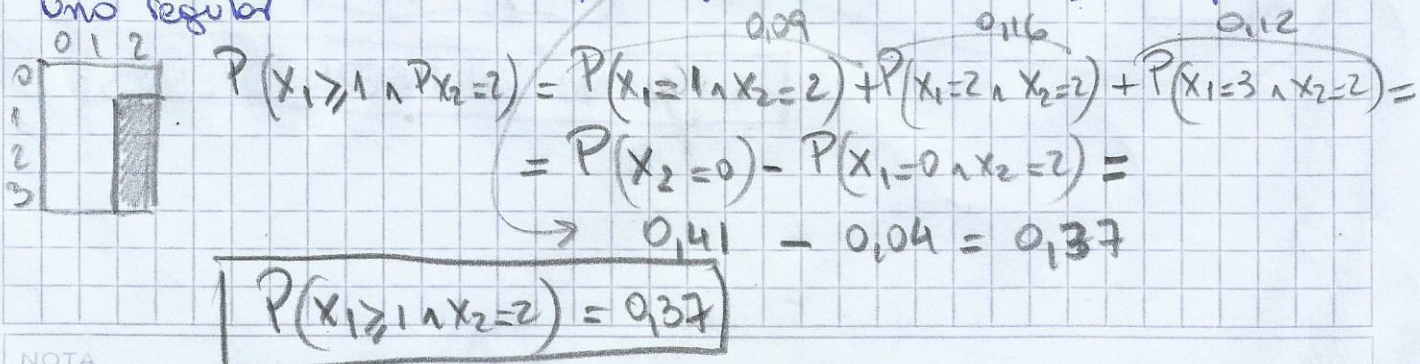 uno regular
0 1 2
0
1
2
3
0,09 0,16 0,12
P(X₁⩾1 ∧ PX₂=2) = P(X₁=1 ∧ X₂=2) + P(X₁=2 ∧ X₂=2) + P(X₁=3 ∧ X₂=2) =
= P(X₂=0) - P(X₁=0 ∧ X₂=2) =
→ 0,41 - 0,04 = 0,37
P(X₁⩾1 ∧ X₂=2) = 0,37
NOTA